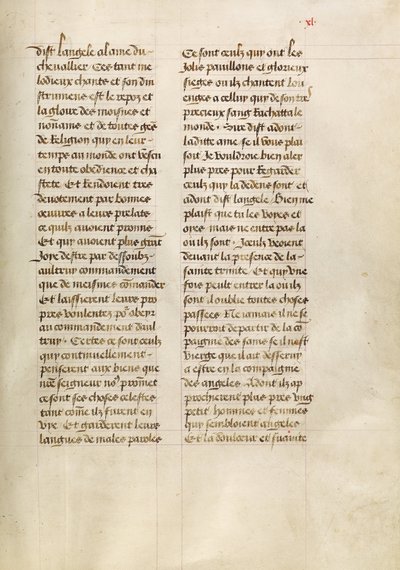 xl.
dist langele a lame du
chevallier Ces tant me
lodieux chants et son din
strumens est le repoz et
la gloire des moisnes et
nonnains et de toutes gẽs
de Religion qui en leur
temps au monde ont vescu
en toute obedience et cha
stete Et rendoient tres
devotement par bonnes
œuvres a leurs prelats
ce quilz avoient promis
Et qui avoient plus grãt
Joye destre par dessoubz
aultruy commandement
que de meismes cõmander
Et laissierent leurs pro
pres voulentez pour obeyr
au commandement daul
truy. Certes ce sont ceulz
qui continuellement
penserent aux biens que
nr̃e seigneur no⁹ promet
ce sont ses choses celestes
tant cõme ilz furent en
vie. Et garderent leurs
langues de males paroles
Ce sont ceulz qui ont les
Jolis pavillons et glorieux
sieges ou ilz chantent lou
enges a celluy qui de son tres
precieux sang Rachatta le
monde. Sire dist adont
la ditte ame se il vous plai
soit Je vouldroie bien aler
plus pres pour Regarder
ceulz qui la dedens sont et
adont dist langele Bien me
plaist que tu les voyes et
oyes mais ne entre pas la
ou ilz sont. Iceulz voient
devant la presence de la
sainte trinite Et qui une
fois peult entrer la ou ilz
sont il oublie toutes choses
passees Ne iamais il ne se
pourroit departir de la cõ
paignie des sains se il nest
vierge que il ait desservy
a estre en la compaignie
des angeles. Adont ilz ap
procherent plus pres ung
petit hommes et femmes
qui sembloient angeles
Et la doulceur et suavite